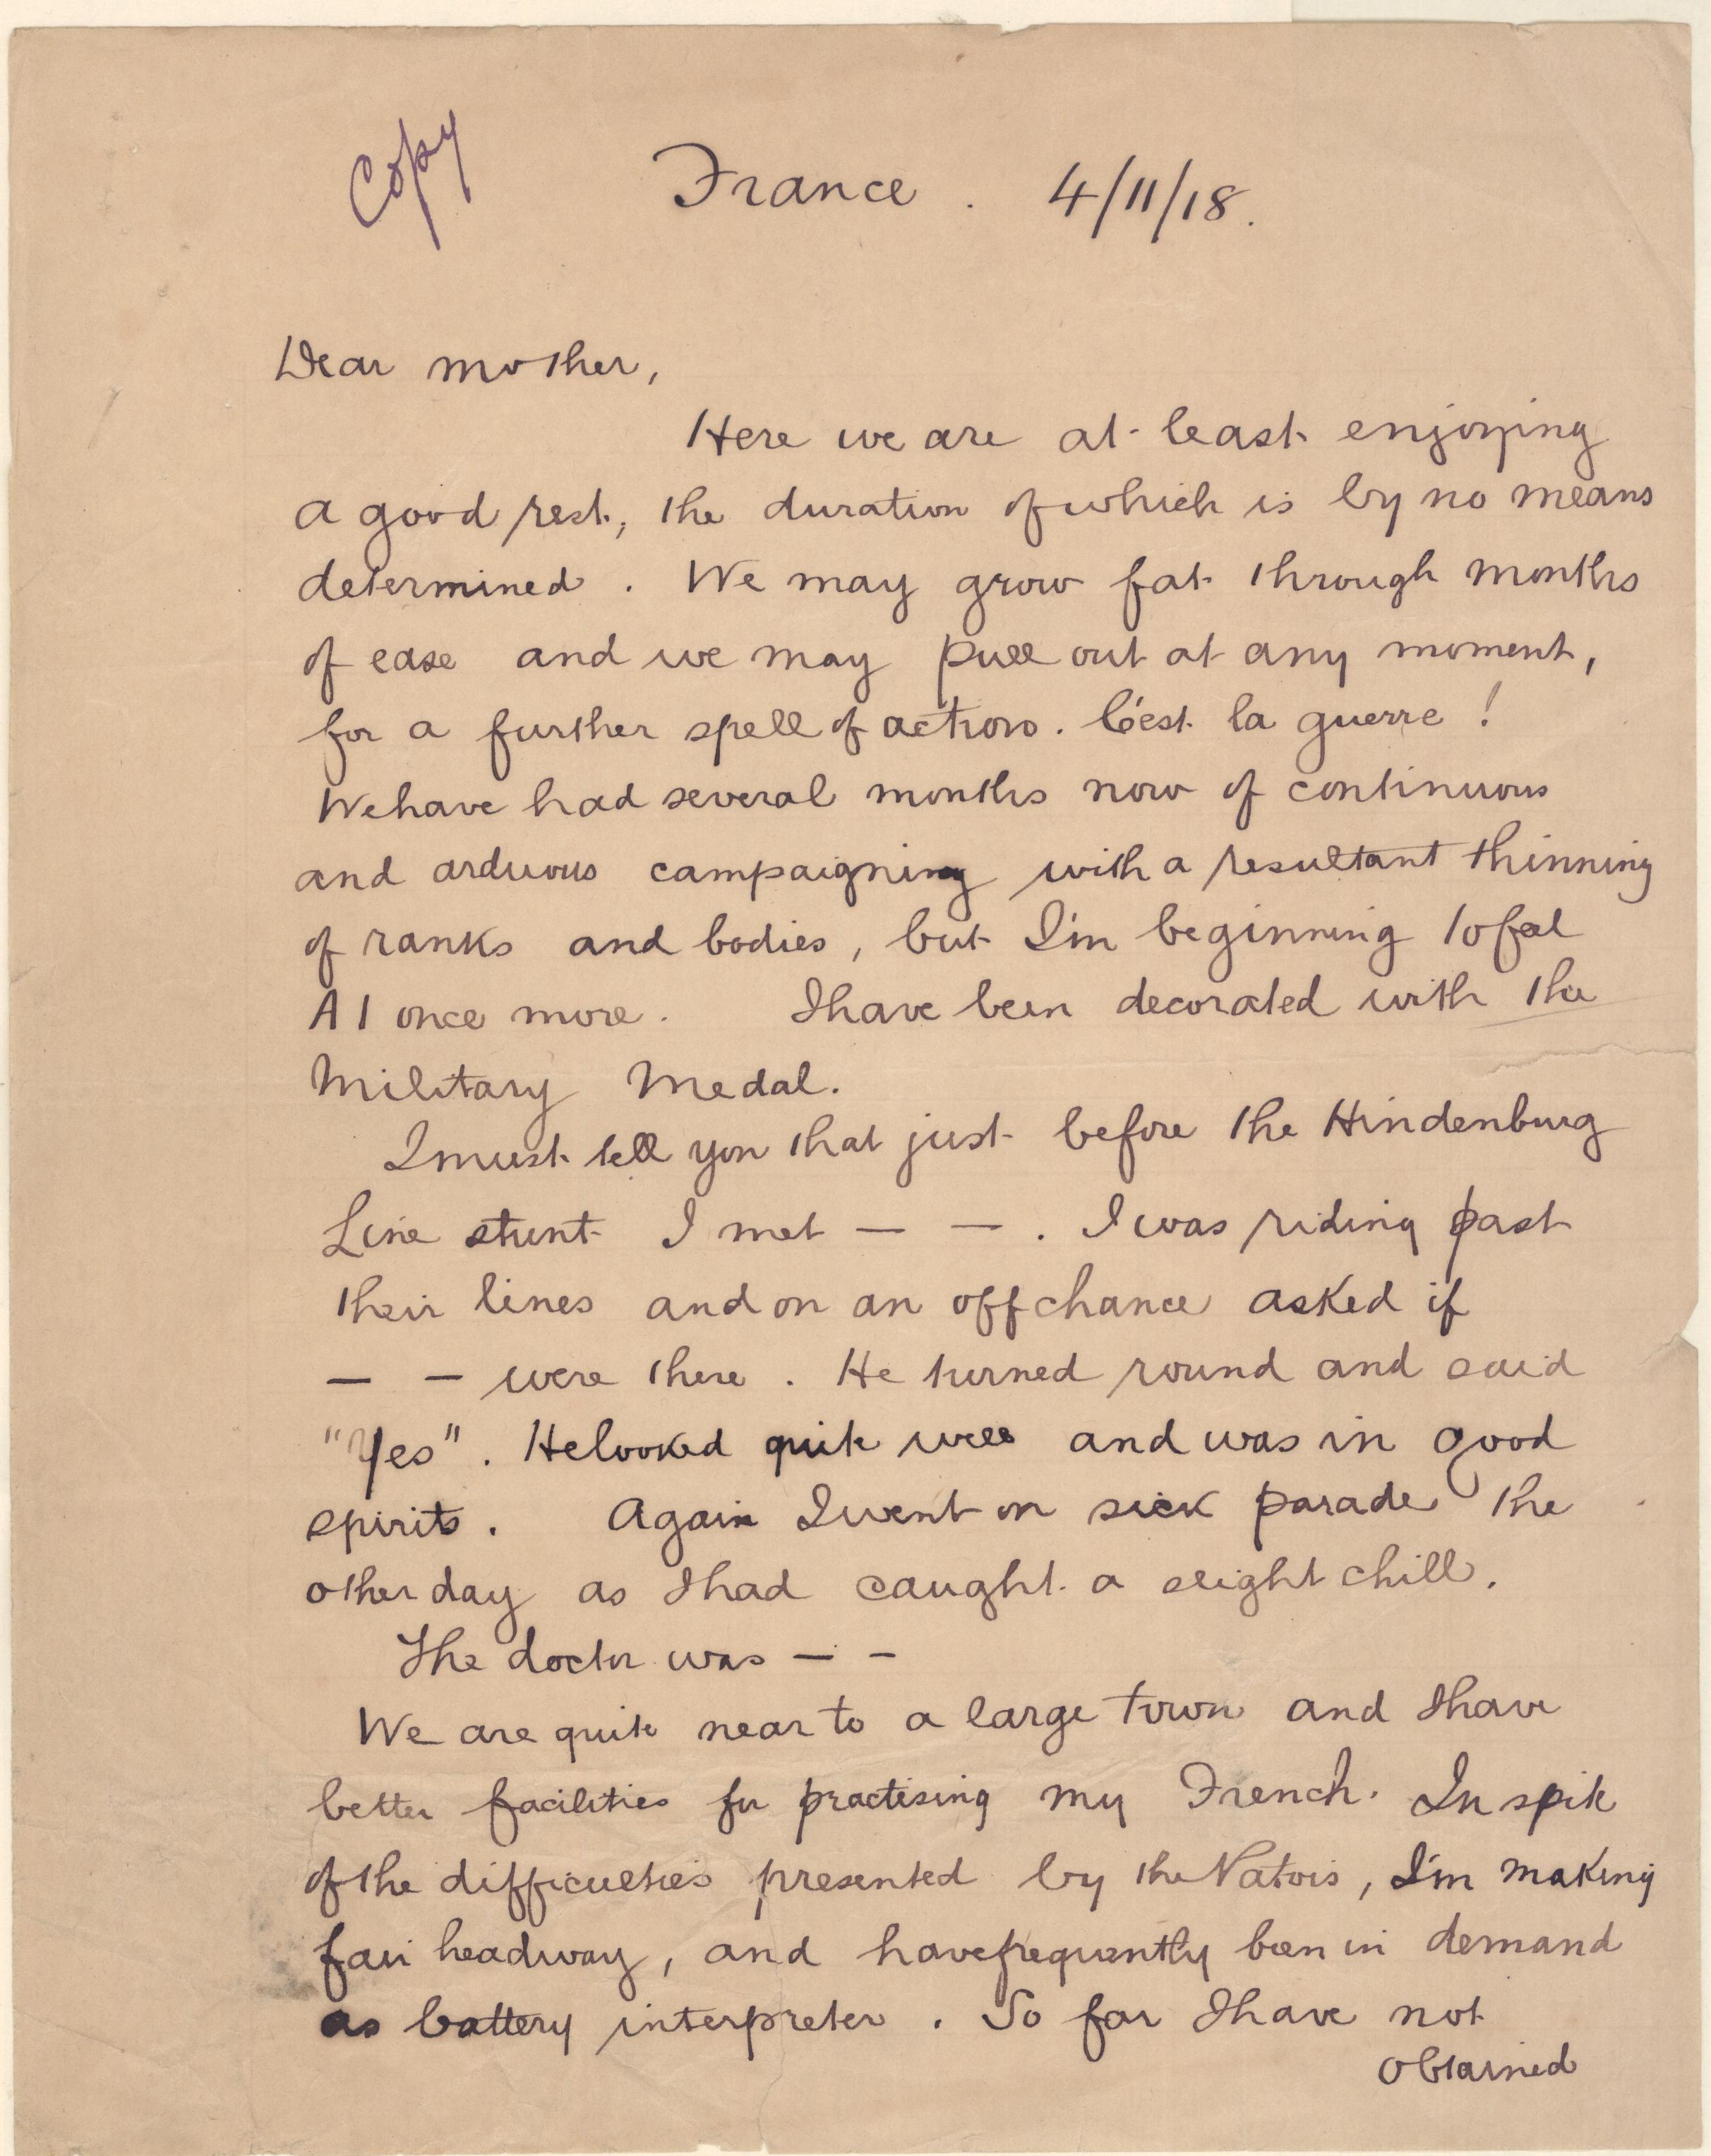 Copy
France. 4/11/18.
Dear mother,
Here we are at least enjoying
a good rest, the duration of which is by no means
determined. We may grow fat through months
of ease and we may pull out at any moment,
for a further spell of action. C'est la guerre!
We have had several months now of continuous
and arduous campaigning with a resultant thinning
of ranks and bodies, but I'm beginning to feel
A1 once more. I have been decorated with the
Military Medal.
I must tell you that just before the Hindenburg
Line stunt I met — —. I was riding past
their lines and on an off chance asked if
— — were there. He turned round and said
"Yes". He looked quite well and was in good
spirits. Again I went on sick parade the
other day as I had caught a slight chill.
The doctor was — —
We are quite near to a large town and I have
better facilities for practising my French. In spite
of the difficulties presented by the Patois, I'm making
fair headway, and have frequently been in demand
as battery interpreter. So far I have not
obtained